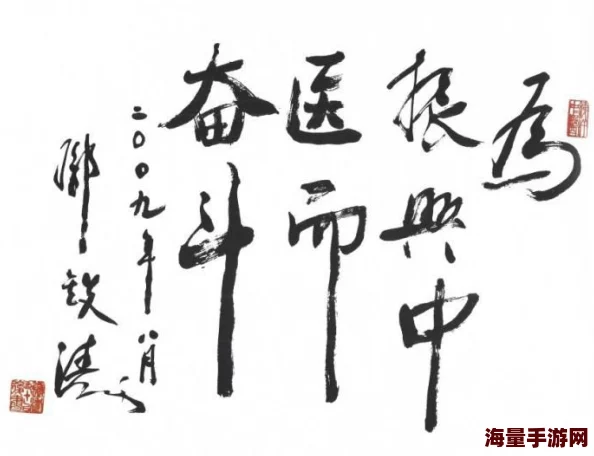 为
振興中
医而
奋斗
二〇〇九年八月
鄧铁涛
海量手游网